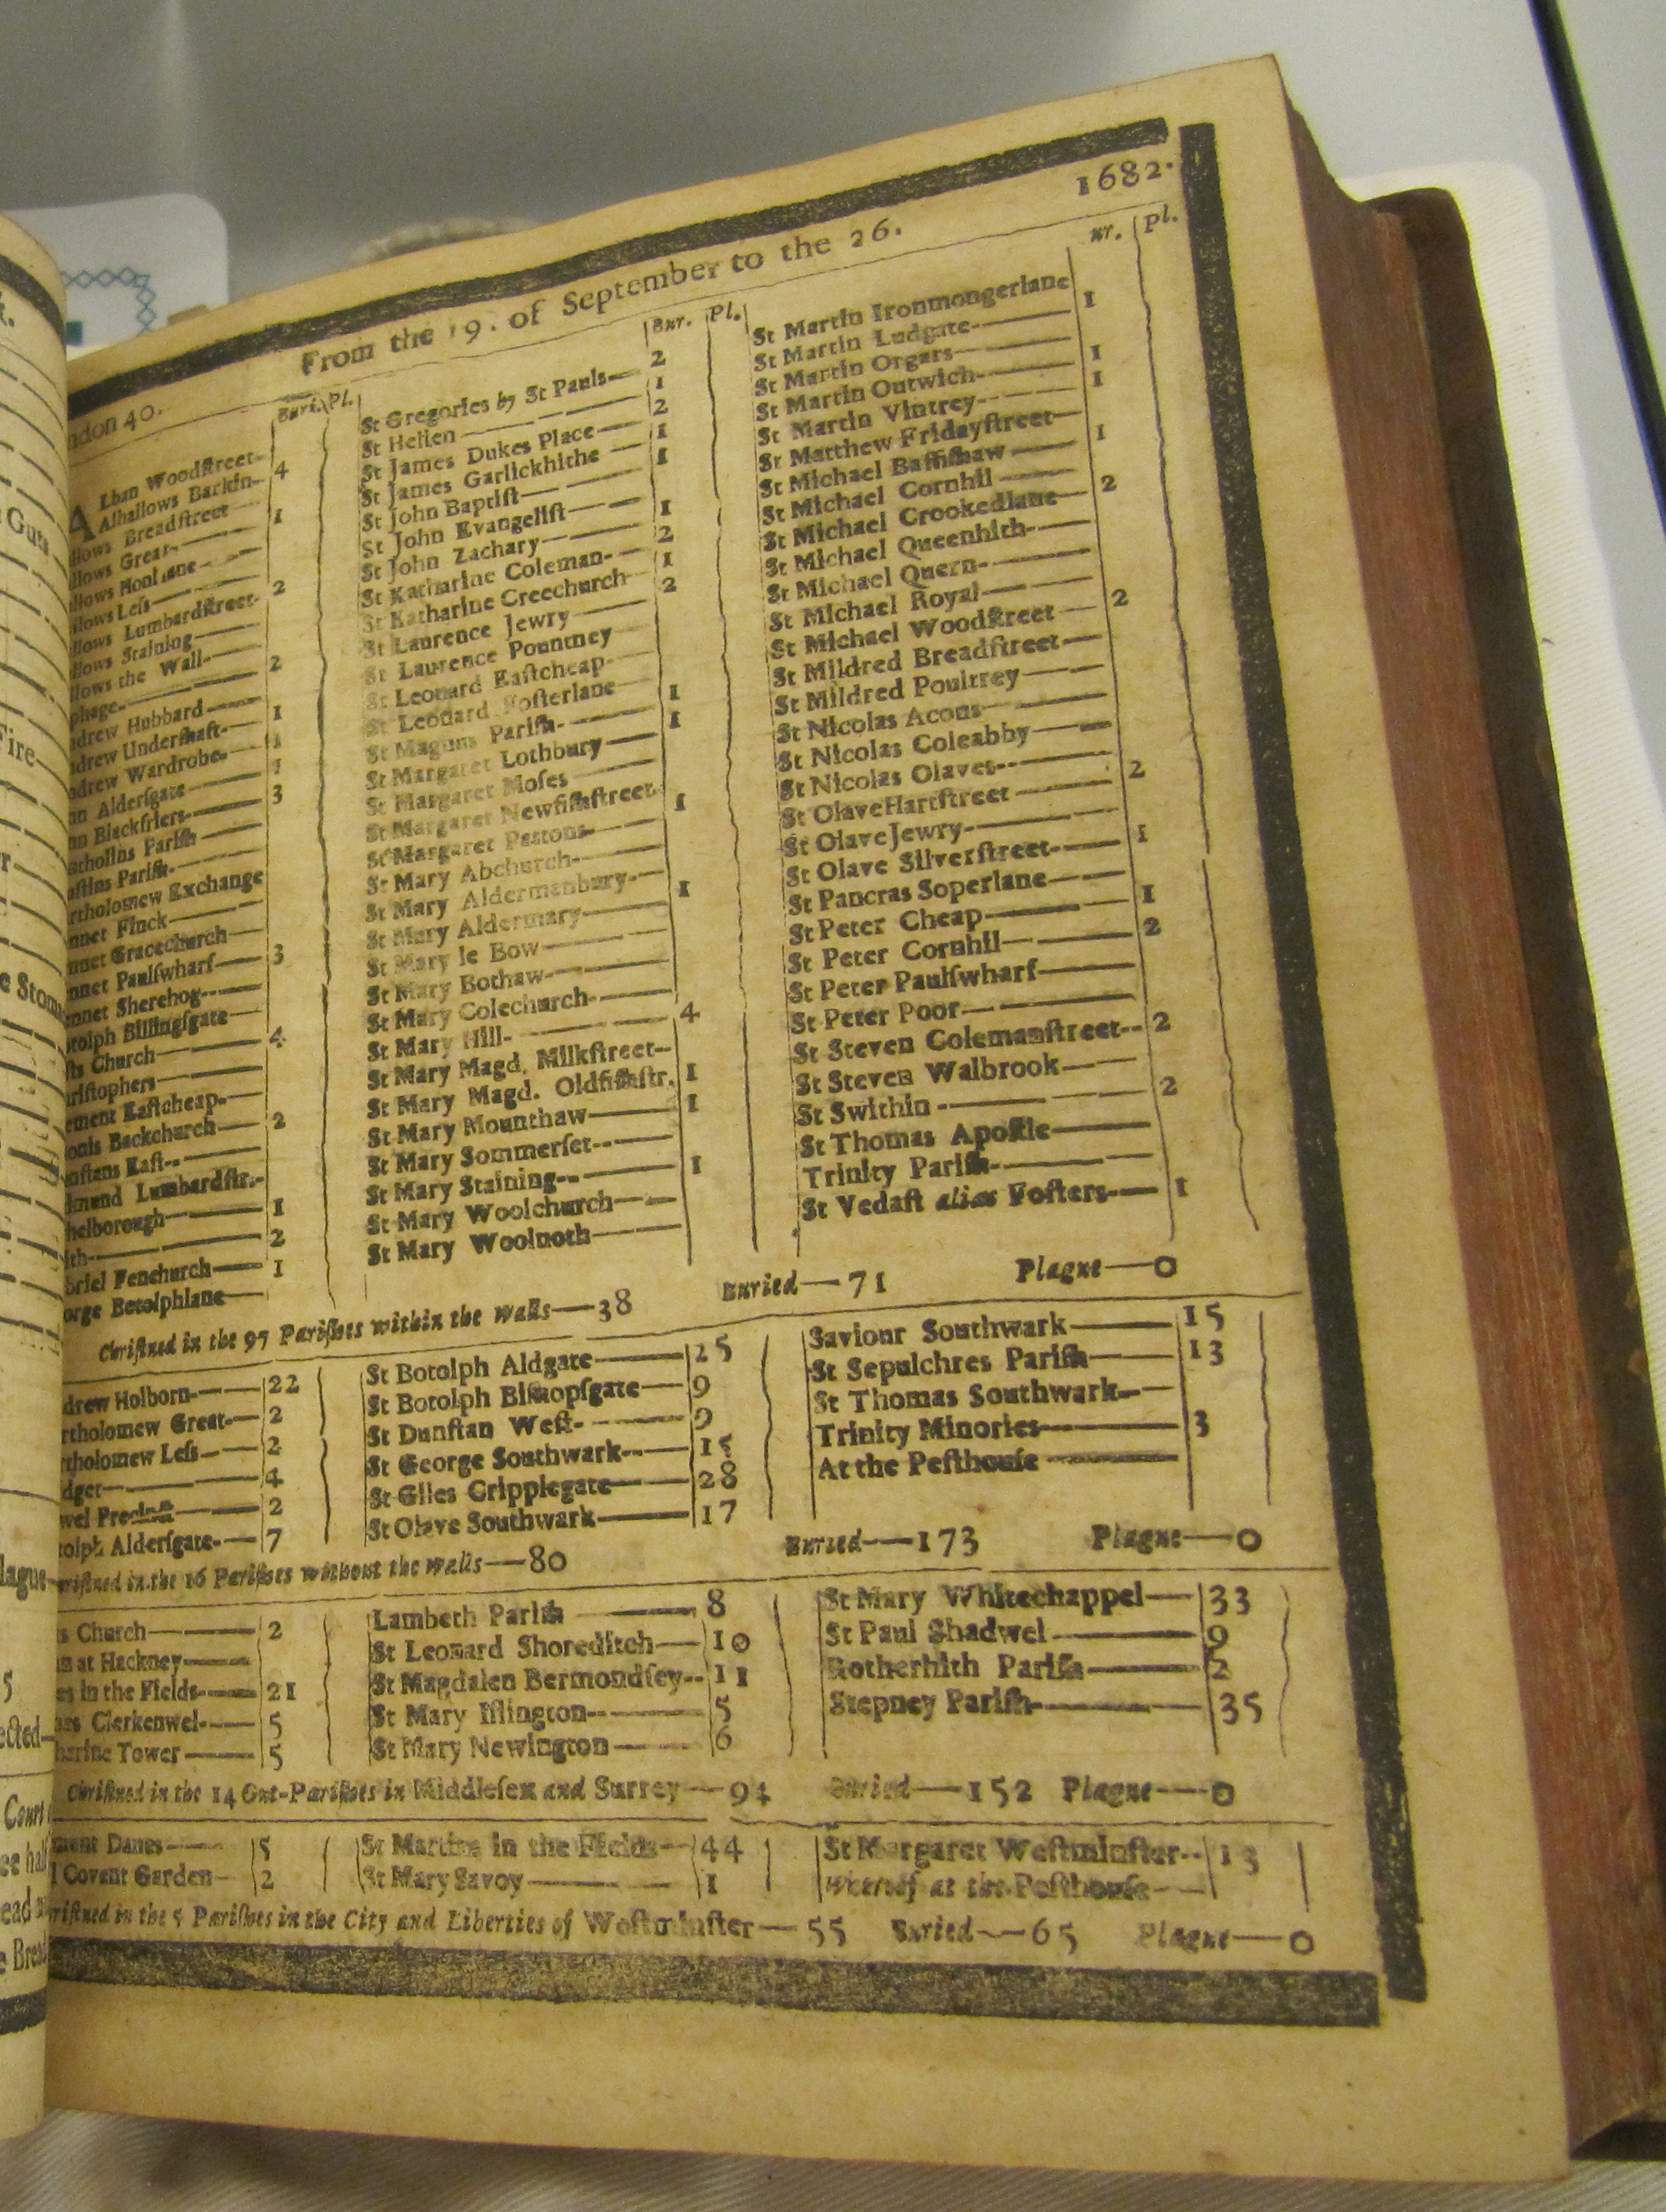 From the 19. of September to the 26. 1682.
ndon 40.
Buri. Pl.
Lban Woodſtreet
Alhallows Barkin 4
llows Breadſtreet
llows Great 1
llows Honilane
llows Leſs
llows Lumbardſtreet 2
llows Staining
llows the Wall
phage 2
drew Hubbard
drew Underſhaft 1
drew Wardrobe 1
nn Alderſgate 1
nn Blackfriers 3
artholins Pariſh
uſtins Pariſh
artholomew Exchange
nnet Finck
nnet Gracechurch
nnet Paulſwharf 3
nnet Sherehog
tolph Billingſgate
ſts Church 4
riſtophers
ement Eaſtcheap
onis Backchurch 2
nſtans Eaſt
dmund Lumbardſtr.
helborough 1
ith 2
briel Fenchurch 1
orge Botolphlane
Bur. Pl.
St Gregories by St Pauls 2
St Hellen 1
St James Dukes Place 2
St James Garlickhithe 1
St John Baptiſt 1
St John Evangeliſt
St John Zachary 1
St Katharine Coleman 2
St Katharine Creechurch 1
St Laurence Jewry 2
St Laurence Pountney
St Leonard Eaſtcheap
St Leonard Foſterlane
St Magnus Pariſh 1
St Margaret Lothbury 1
St Margaret Moſes
St Margaret Newfiſhſtreet
St Margaret Pattons 1
St Mary Abchurch
St Mary Aldermanbury
St Mary Aldermary 1
St Mary le Bow
St Mary Bothaw
St Mary Colechurch
St Mary Hill 4
St Mary Magd. Milkſtreet
St Mary Magd. Oldfiſhſtr. 1
St Mary Mounthaw 1
St Mary Sommerſet
St Mary Staining 1
St Mary Woolchurch
St Mary Woolnoth
ur. Pl.
St Martin Ironmongerlane
St Martin Ludgate 1
St Martin Orgars
St Martin Outwich 1
St Martin Vintrey 1
St Matthew Fridayſtreet
St Michael Baſſiſhaw 1
St Michael Cornhil
St Michael Crookedlane 2
St Michael Queenhith
St Michael Quern
St Michael Royal
St Michael Woodſtreet 2
St Mildred Breadſtreet
St Mildred Poultrey
St Nicolas Acons
St Nicolas Coleabby
St Nicolas Olaves
St Olave Hartſtreet 2
St Olave Jewry
St Olave Silverſtreet 1
St Pancras Soperlane
St Peter Cheap 1
St Peter Cornhil 2
St Peter Paulſwharf
St Peter Poor
St Steven Colemanſtreet 2
St Steven Walbrook
St Swithin 2
St Thomas Apoſtle
Trinity Pariſh
St Vedaſt alias Foſters 1
Chriſtned in the 97 Pariſhes within the walls—38 Buried—71 Plague—0
drew Holborn 22
rtholomew Great 2
rtholomew Leſs 2
dget 4
wel Precinct 2
tolph Alderſgate 7
St Botolph Aldgate 25
St Botolph Biſhopſgate 9
St Dunſtan Weſt 9
St George Southwark 15
St Giles Cripplegate 28
St Olave Southwark 17
Saviour Southwark 15
St Sepulchres Pariſh 13
St Thomas Southwark
Trinity Minories 3
At the Peſthouſe
riſtned in the 16 Pariſhes without the walls—80 Buried—173 Plague—0
s Church 2
n at Hackney
es in the Fields 21
mes Clerkenwel 5
harine Tower 5
Lambeth Pariſh 8
St Leonard Shoreditch 10
St Magdalen Bermondſey 11
St Mary Iſlington 5
St Mary Newington 6
St Mary Whitechappel 33
St Paul Shadwel 9
Rotherhith Pariſh 2
Stepney Pariſh 35
Chriſtned in the 14 Out-Pariſhes in Middleſex and Surrey—94 Buried—152 Plague—0
ment Danes 5
l Covent Garden 2
St Martins in the Fields 44
St Mary Savoy 1
St Margaret Weſtminſter 13
Whereof at the Peſthouſe
riſtned in the 5 Pariſhes in the City and Liberties of Weſtminſter—55 Buried—65 Plague—0
Guts
Fire
e Stom
lague
5
ected
Court
ee hal
ead
e Bread